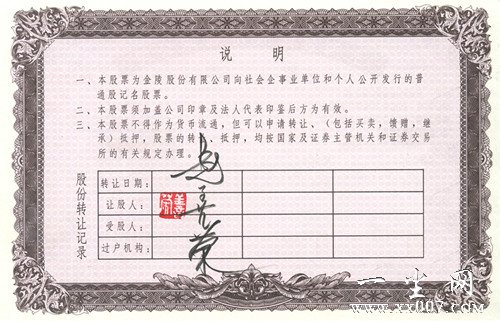 说 明
一、本股票为金陵股份有限公司向社会企事业单位和个人公开发行的普
通股记名股票。
二、本股票须加盖公司印章及法人代表印签后方为有效。
三、本股票不得作为货币流通，但可以申请转让、（包括买卖，馈赠，继
承）抵押，股票的转让、抵押，均按国家及证券主管机关和证券交易
所的有关规定办理。
股份转让记录
转让日期：
让股人：
受股人：
过户机构：
一尘网
www.xx007.com